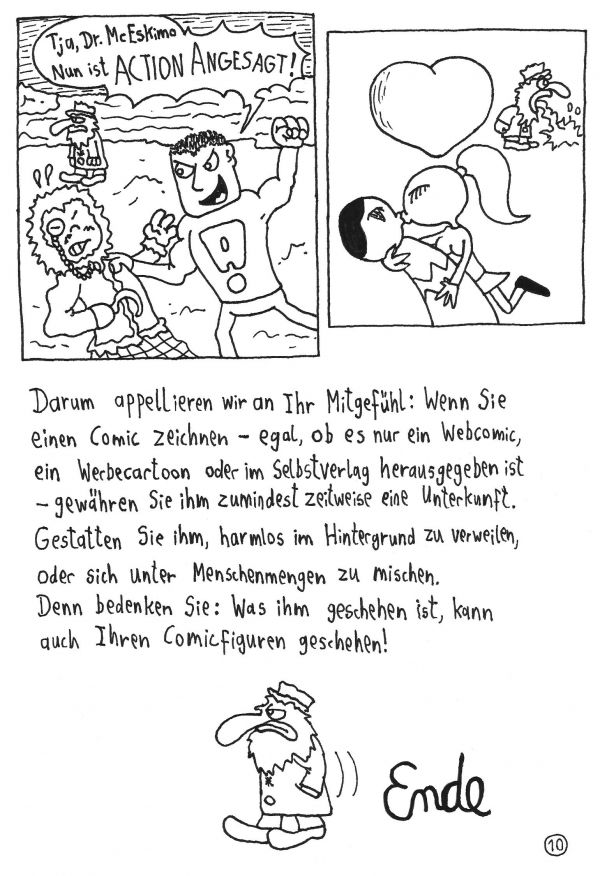 Tja, Dr. McEskimo
Nun ist ACTION ANGESAGT!
Darum appellieren wir an Ihr Mitgefühl: Wenn Sie
einen Comic zeichnen – egal, ob es nur ein Webcomic,
ein Werbecartoon oder im Selbstverlag herausgegeben ist
– gewähren Sie ihm zumindest zeitweise eine Unterkunft.
Gestatten Sie ihm, harmlos im Hintergrund zu verweilen,
oder sich unter Menschenmengen zu mischen.
Denn bedenken Sie: Was ihm geschehen ist, kann
auch Ihren Comicfiguren geschehen!
Ende
10